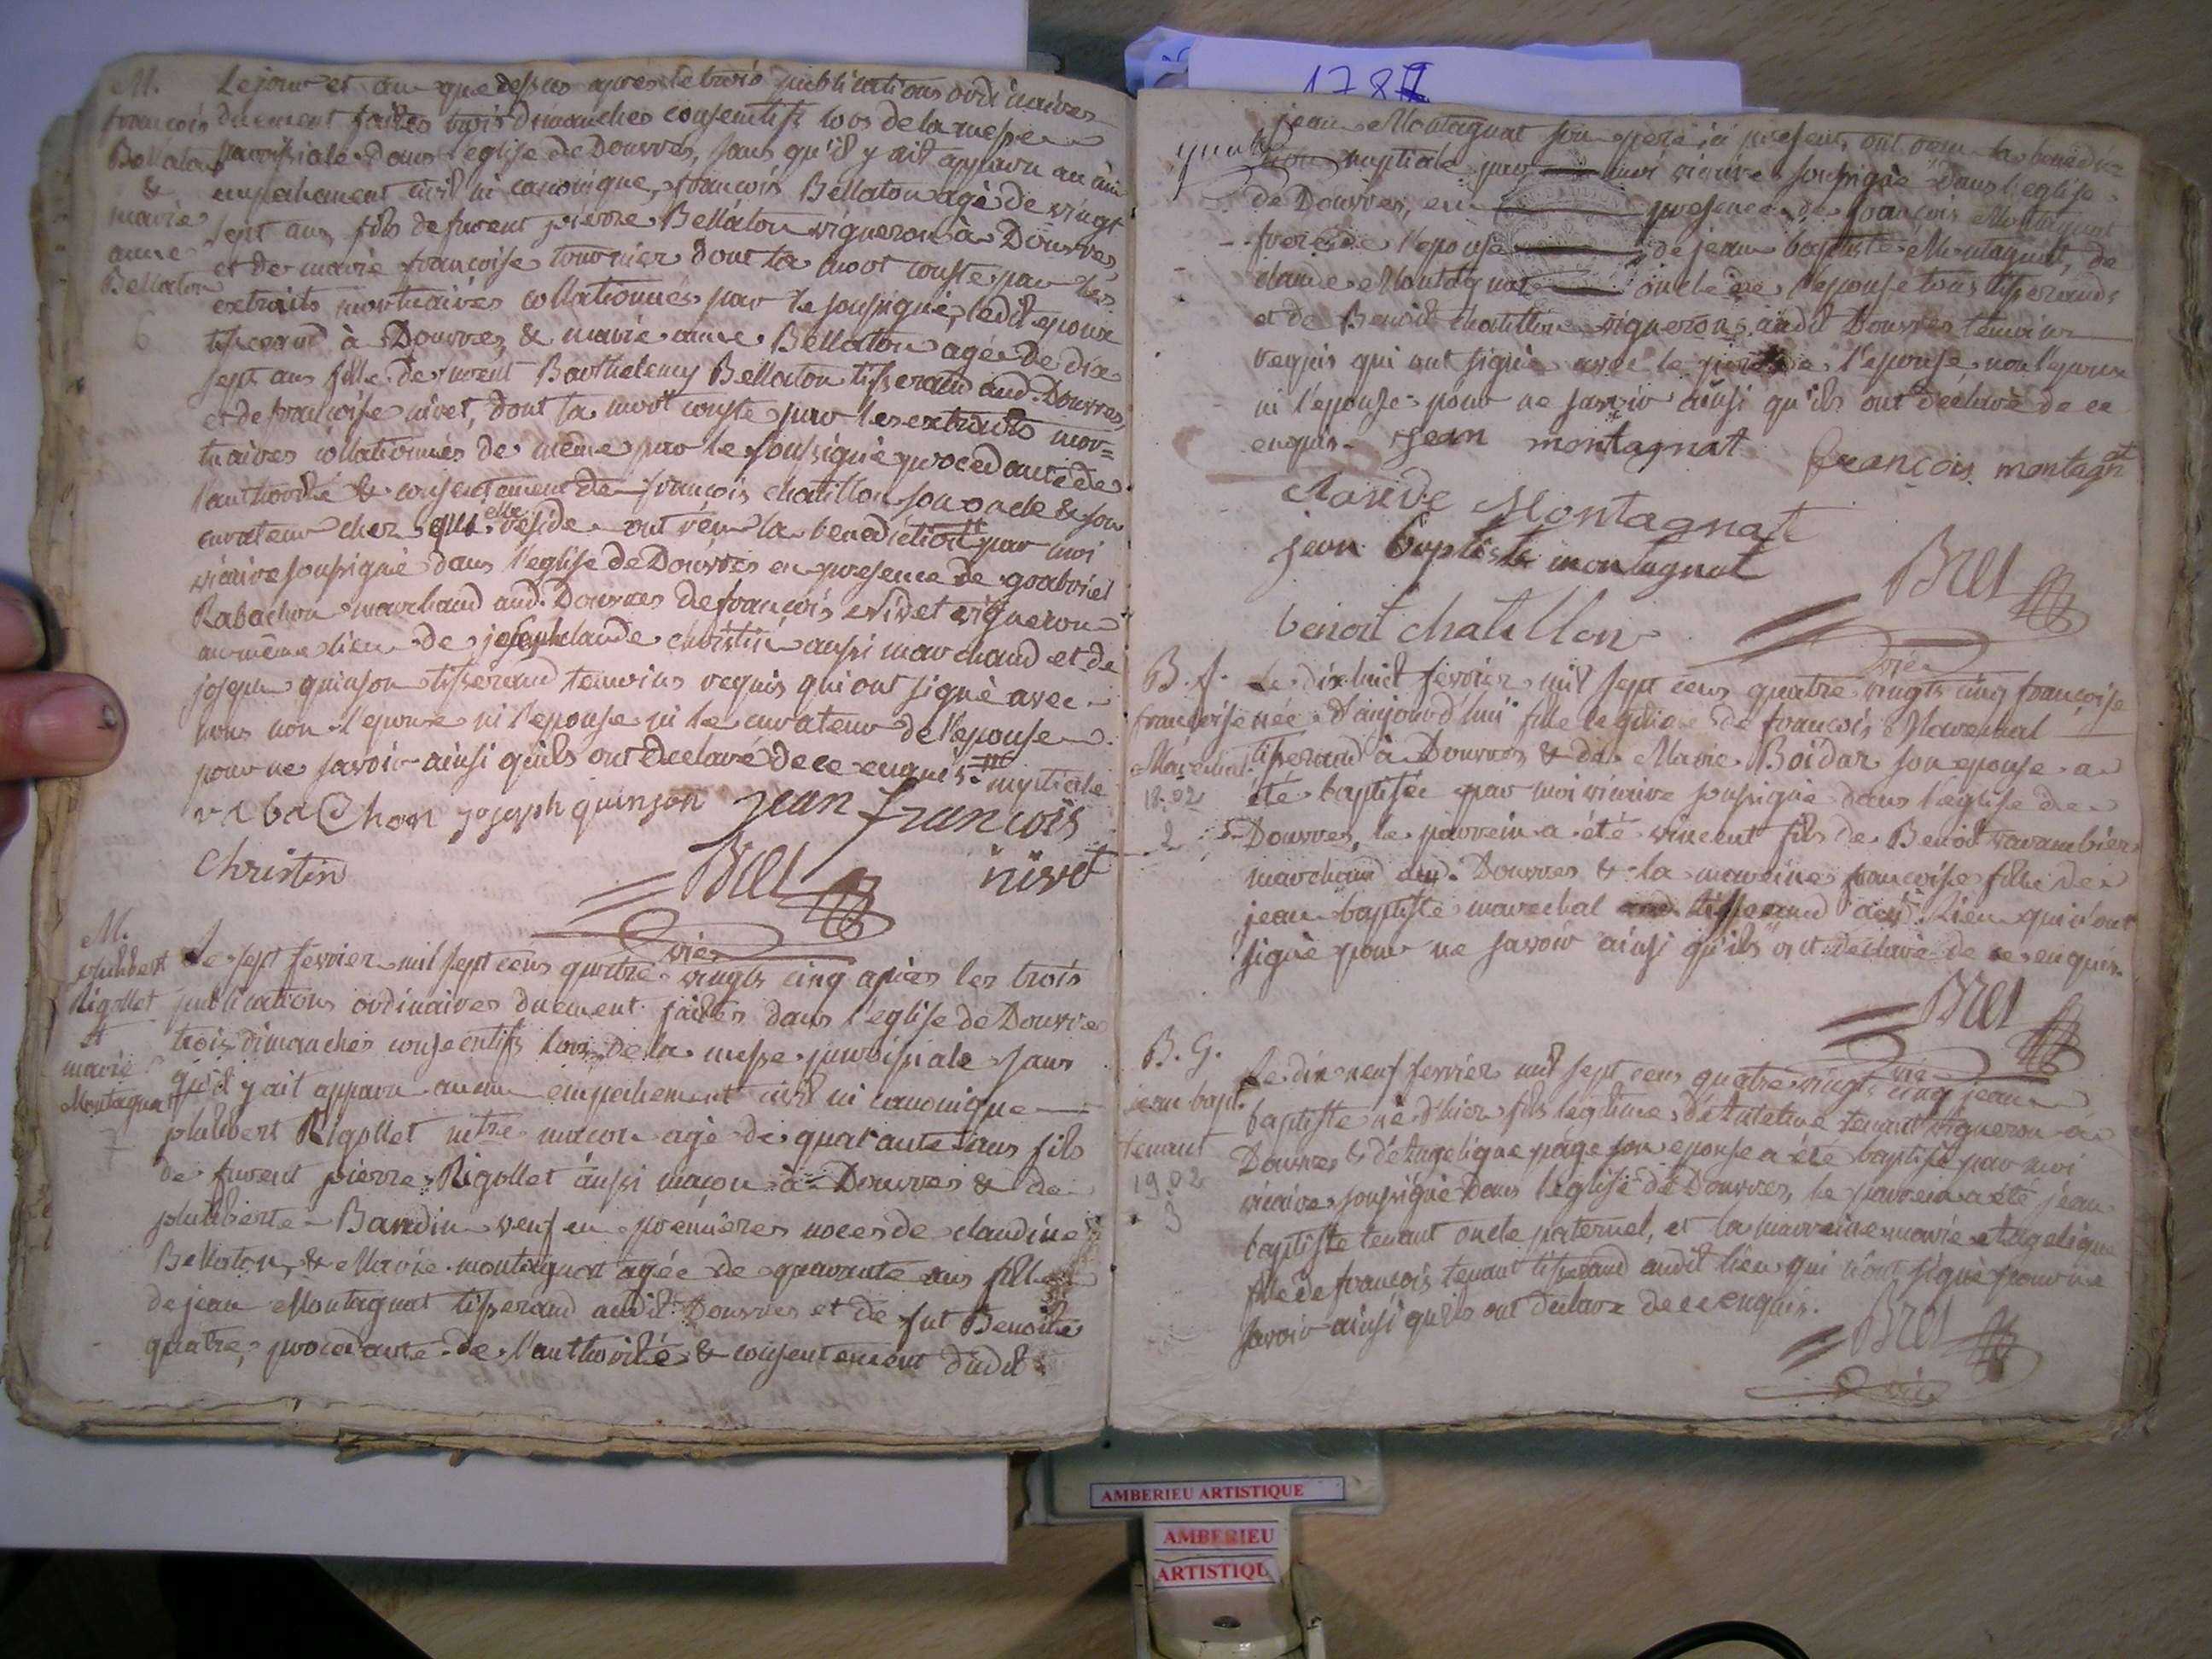 M.
françois
Bellaton
&
marie
anne
Bellaton
6
Le jour et an que dessus apres les trois publications ordinaires
duement faites trois dimanches consecutifs lors de la messe
paroissiale dans l'eglise de Douvres, sans qu'il y ait apparu aucun
empechement civil ni canonique, françois Bellaton agé de vingt
sept ans, fils de furent pierre Bellaton vigneron à Douvres,
et de marie françoise tournier dont la mort conste par les
extraits mortuaires collationnés par le soussigné, ledit epoux
tisserand à Douvres, & marie anne Bellaton agée de dix
sept ans fille de furent Barthelemy Bellaton tisserand aud. Douvres,
et de françoise nivet, dont la mort conste par les extraits mor=
tuaires collationnés de même par le soussigné procedante de
l'authorité & consentement de françois chatillon son oncle & son
curateur chez qui elle reside ont reçu la benediction # par moi
vicaire soussigné dans l'eglise de Douvres en presence de gabriel
Rabachon marchand aud. Douvres de françois nivet vigneron
au même lieu de joseph claude christin aussi marchand et de
joseph quinson tisserand temoins requis qui ont signé avec
nous non l'epoux ni l'epouse ni le curateur de l'epouse
pour ne savoir ainsi qu'ils ont declaré de ce enquis. # nuptiale
rabachon joseph quinson jean françois
christin Bret nivet
vic
M.
philibert
Rigollet
et
marie
Montagnat
7
Le sept fevrier mil sept cens quatre vingts cinq après les trois
publications ordinaires duement faites dans l'eglise de Douvres
trois dimanches consecutifs lors de la messe paroissiale sans
qu'il y ait apparu aucun empechement civil ni canonique
philibert Rigollet mtre maçon agé de quarante ans fils
de furent pierre Rigollet aussi maçon à Douvres & de
philiberte Baudin veuf en premières noces de claudine
Bellaton, & Marie montagnat agée de quarante ans fille
de jean Montagnat tisserand audit Douvres et de fut Benoite
quatre, procedante de l'authorité & consentement dudit
1787
jean Montagnat son pere ici present, ont reçu la benedic
tion nuptiale par moi vicaire soussigné dans l'eglise
de Douvres, en presence de françois Montagnat
frere de l'epouse de jean baptiste Montagnat, de
claude Montagnat oncle de l'epouse tous tisserands
et de Benoit chatillon vigneron audit Douvres temoins
requis qui ont signé avec le pere de l'epouse non l'epoux
ni l'epouse pour ne savoir ainsi qu'ils ont déclaré de ce
enquis. jean montagnat françois montagnat
claude Montagnat
jean baptiste montagnat
Bret
benoit chatillon
vic
B. f.
françoise
Marechal
18.02
2
Le dix huit fevrier mil sept cens quatre vingts cinq françoise
née d'aujourd'hui fille legitime de françois Marechal
tisserand à Douvres & de Marie Boidar son epouse a
été baptisée par moi vicaire soussigné dans l'eglise de
Douvres, le parrein a été vincent fils de Benoit varambier
marchand aud. Douvres & la marreine françoise fille de
jean baptiste marechal tisserand aud. lieu qui n'ont
signé pour ne savoir ainsi qu'ils ont déclaré de ce enquis.
Bret
vic
B. G.
jean bapt.
tenant
19.02
3
Le dix neuf fevrier mil sept cens quatre vingts cinq jean
baptiste né d'hier fils legitime d'Antelme tenant vigneron à
Douvres & d'Angelique page son epouse a été baptisé par moi
vicaire soussigné dans l'eglise de Douvres, le parrein a été jean
baptiste tenant oncle paternel, et la marreine marie Angelique
fille de françois tenant tisserand audit lieu qui n'ont signé pour ne
savoir ainsi qu'ils ont declaré de ce enquis.
Bret
vic
AMBERIEU ARTISTIQUE
AMBERIEU
ARTISTIQU